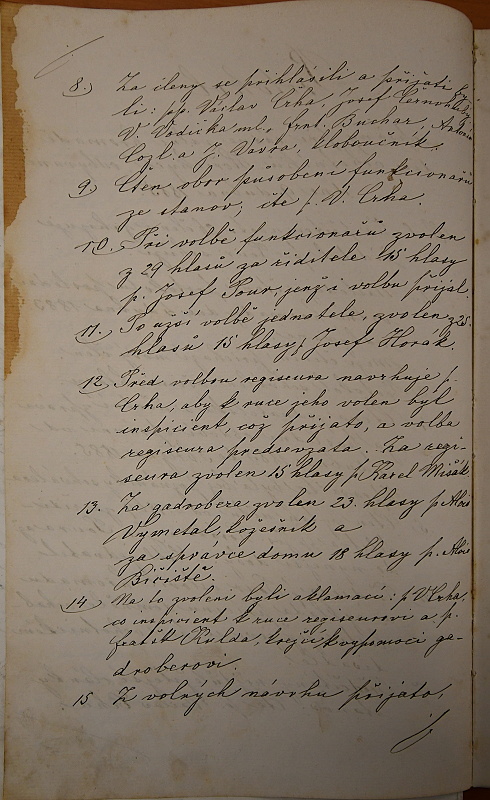 8.) Za členy se přihlásili a přijati
li: pp. Václav Crha, Josef Černohlá
V. Vodička ml., Frnt. Buchar, Antonín
Cozl a J. Vávra, kloboučník.
9.) Čten obor působení funkcionářů
ze stanov; čte p. V. Crha.
10.) Při volbě funkcionářů zvolen
z 29 hlasů za řiditele 15 hlasy
p. Josef Pour, jenž i volbu přijal.
11.) Po užší volbě jednatele, zvolen z 28
hlasů 15 hlasy p. Josef Horák.
12.) Před volbou regiseura navrhuje p.
Crha, aby k ruce jeho volen byl
inspicient, což přijato, a volba
regiseura předsevzata. Za regi-
seura zvolen 15 hlasy p. Karel Mišák.
13. Za gadrobera zvolen 23. hlasy p. Alois
Vymetal, kožešník a
za správce domu 18 hlasy p. Alois
Bičiště.
14.) Na to zvoleni byli aklamací: p. V. Crha,
co inspicient k ruce regiseurovi a p.
Frašk Rulda, krejčí k výpomoci ga-
droberovi.
15 Z volných návrhu přijato,